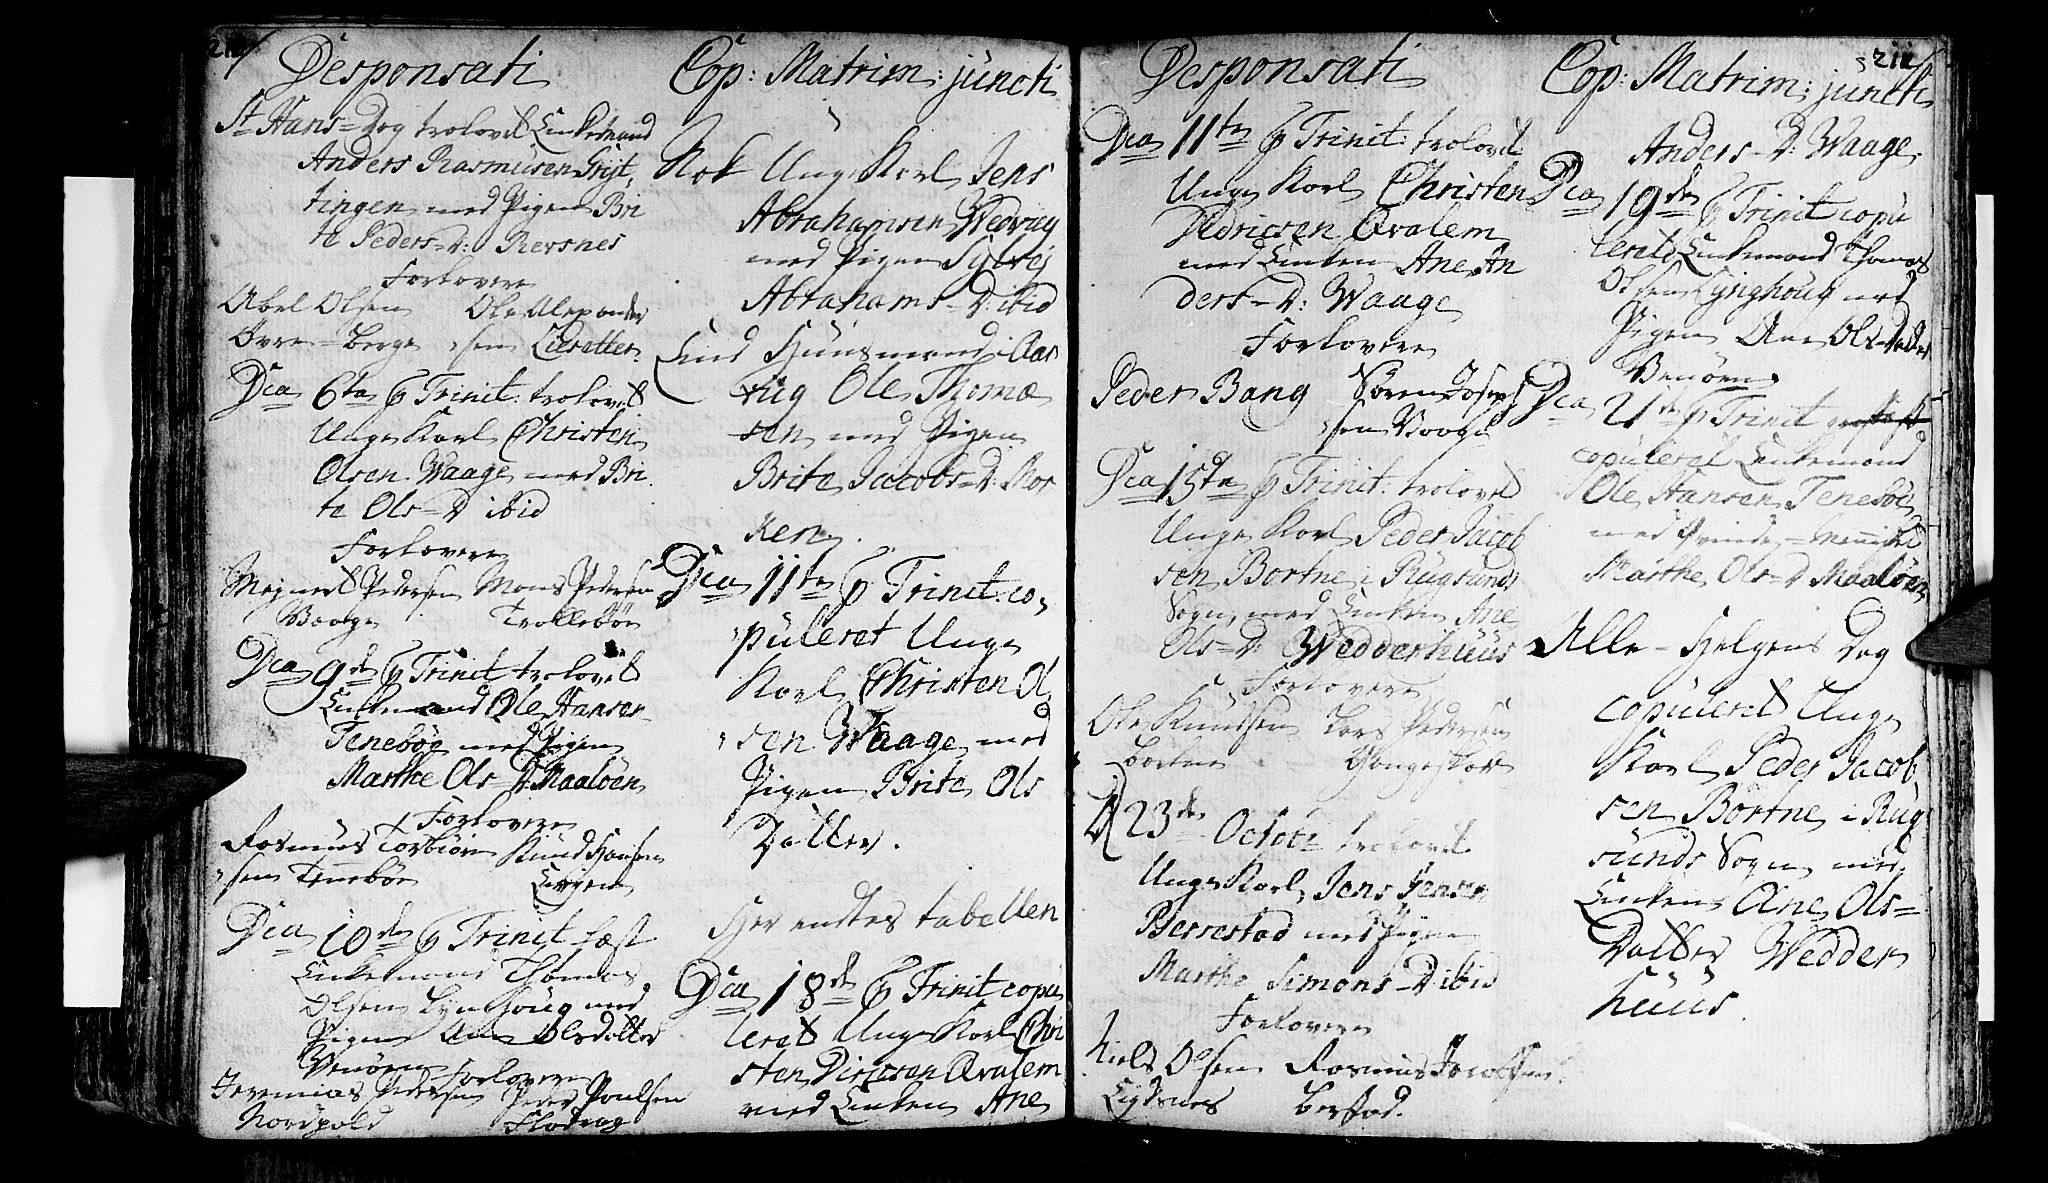 Desponsati
St Hans=Dag trolovet Enkemand
Anders Rasmusen Gryt
tingen med Pigen Bri
te Peders=D: Rersnes
Forlovere
Abel Olsen Ole Alexander
Berge sen
Dca 6ta p Trinit: trolovet
Unge Karl Christen
Olsen Waage med Bri
te Ols=D ibid
Forlovere
Pedersen Mons Pedersen
Waage Trollebøe
Dca 9de p Trinit trolovet
Enkemand Ole Hansen
Tenebøe med Pigen
Marthe Ols=D Maaløen
Forlovere
Rasmus Torbiørn Knud Hansen
sen Tenebøe
Dca 10de p Trinit fæst
Enkemand Thomas
Olsen Lynghoug med
Pigen Ane Olsdatter
Venøen Forlovere
Jeremias Pedersen Peder Poulsen
Nordpold Flodeag
Cop: Matrim: juncti
Nok Unge Karl Jens
Abrahamsen Wedvig
med Pigen Sylvej
Abrahams=D: ibid
Huusmand i Aar
vig Ole Thomæ
sen med Pigen
Brite Jacobs=D: Mor
ken
Dca 11te p Trinit: co
puleret Unge
Karl Christen Ol
sen Waage med
Pigen Brite Ols
Datter.
Her endtes tabellen
Dca 18de p Trinit copu
leret Unge Karl Chri
sten Diricsen Qvalem
med Enken Ane
211
Desponsati
Dca 11te p Trinit: trolovet
Unge Karl Christen
Didricsen Qvalem
med Enken Ane An
ders=D: Waage
Forlovere
Peder Bang Søren Joseph
sen Waage
Dca 15de p Trinit: trolovet
Unge Karl Peder Jacob
sen Bortne i Rugsunds
Sogn, med Enken Ane
Ols=D: Wedderhuus
Forlovere
Ole Knudsen Lars Pedersen
Bortne
D 23de Octobr trolovet
Unge Karl Jens Jensen
Berrestad med Pigen
Marthe Simons=D ibid
Forlovere
Niels Olsen Rasmus Jacobsen
Berstad.
Cop: Matrim: juncti
Anders=D: Waage.
Dca 19de p Trinit copu
leret Enkemand Thomas
Olsen Lynghoug med
Pigen Ane Ols=Datter
Venøen
Dca 21de p Trinit
copuleret Enkemand
Ole Hansen Tenebøe
med Qvinde=Menniske
Marthe Ols=D Maaløen
Alle=Helgens Dag
copuleret Unge
Karl Peder Jacob
sen Bortne i Rug
sunds Sogn med
Enken Ane Ols=
Datter Wedder
huus